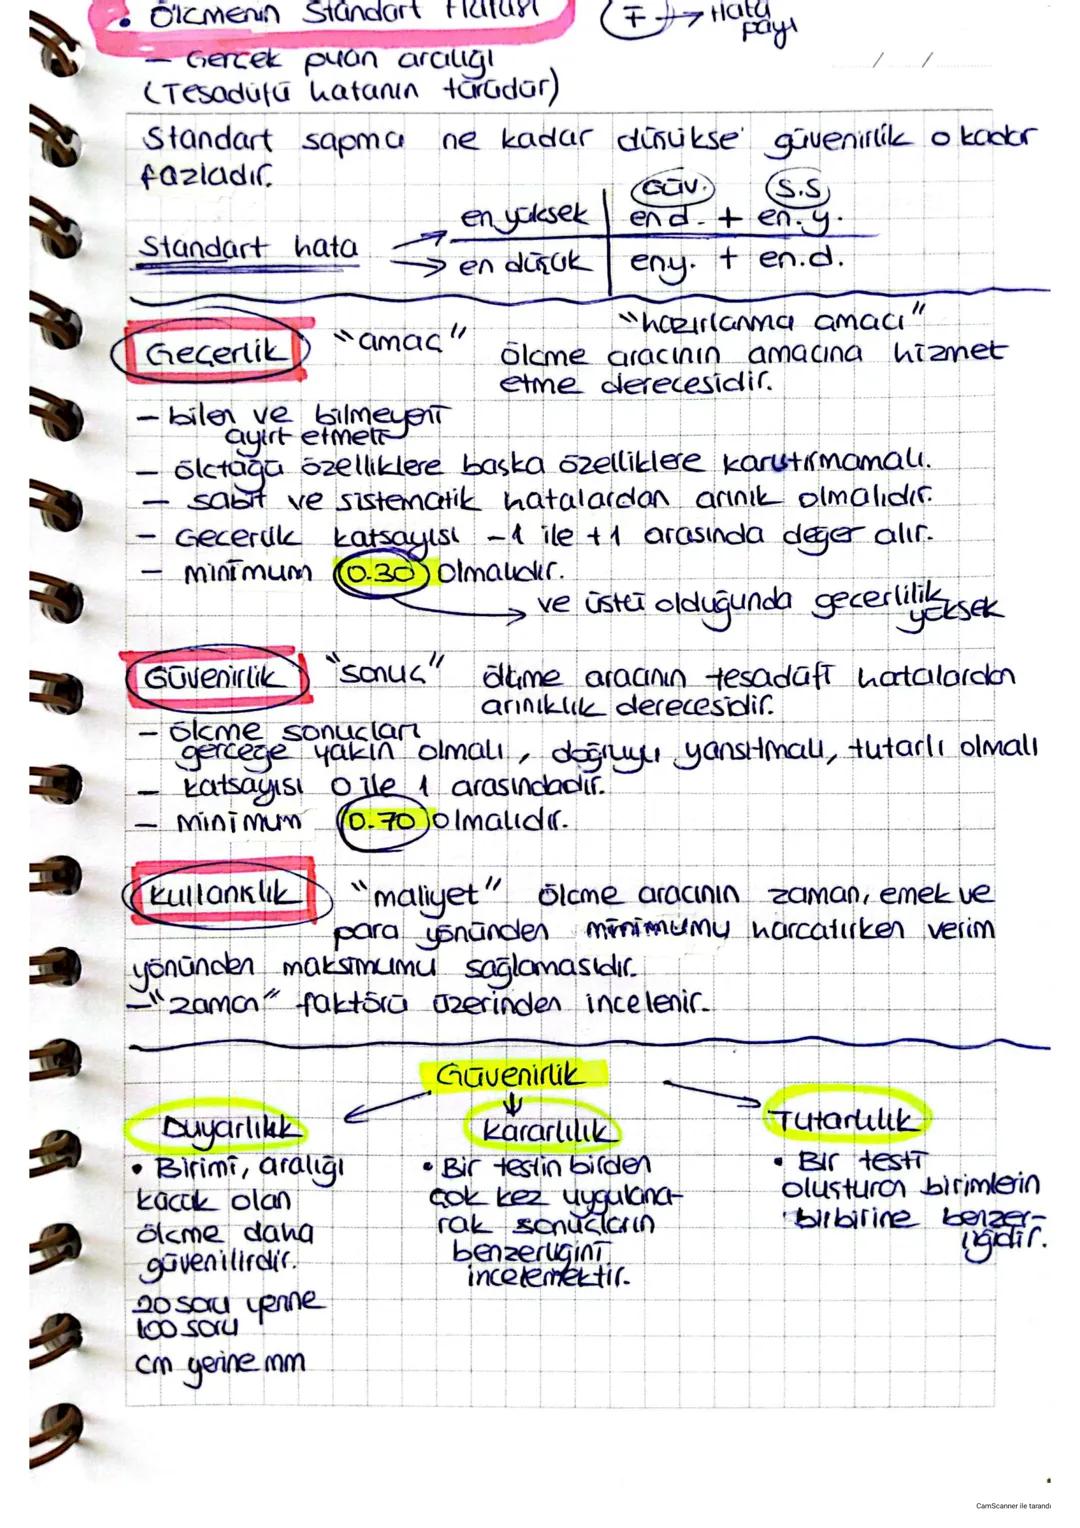 • Ölçmenin Standart Hatası (∓) → Hata payı
- Gerçek puan aralığı
(Tesadüfü hatanın türüdür)
/ /
Standart sapma ne kadar düşükse güvenirlik o kadar
fazladır.
Güv. S.S
en yüksek en d. + en.y.
Standart hata
en düşük en y. + en.d.
Geçerlik "amaç" "hazırlanma amacı"
ölçme aracının amacına hizmet
etme derecesidir.
- bilen ve bilmeyeni
ayırt etmeli
- ölçtüğü özelliklere başka özelliklere karıştırmamalı.
- sabit ve sistematik hatalardan arınık olmalıdır.
- Geçerlik katsayısı -1 ile +1 arasında değer alır.
- minimum 0.30 olmalıdır.
ve üstü olduğunda geçerlilik
yüksek
Güvenirlik "sonuç" ölçme aracının tesadüfi hatalardan
arınıklık derecesidir.
- ölçme sonuçları
gerçeğe yakın olmalı, doğruyu yansıtmalı, tutarlı olmalı
- katsayısı 0 ile 1 arasındadır.
- minimum 0.70 olmalıdır.
Kullanışlık "maliyet" ölçme aracının zaman, emek ve
para yönünden minimumu harcatırken verim
yönünden maksimumu sağlamasıdır.
- "zaman" faktörü üzerinden incelenir.
Güvenirlik
Duyarlılık
• Birimi, aralığı
küçük olan
ölçme daha
güvenilirdir.
20 soru yerine
100 soru
cm yerine mm
Kararlılık
• Bir testin birden
çok kez uygulana-
rak sonuçların
benzerliğini
incelemektir.
Tutarlılık
• Bir testi
oluşturan birimlerin
birbirine benzer-
liğidir.
CamScanner ile tarandı